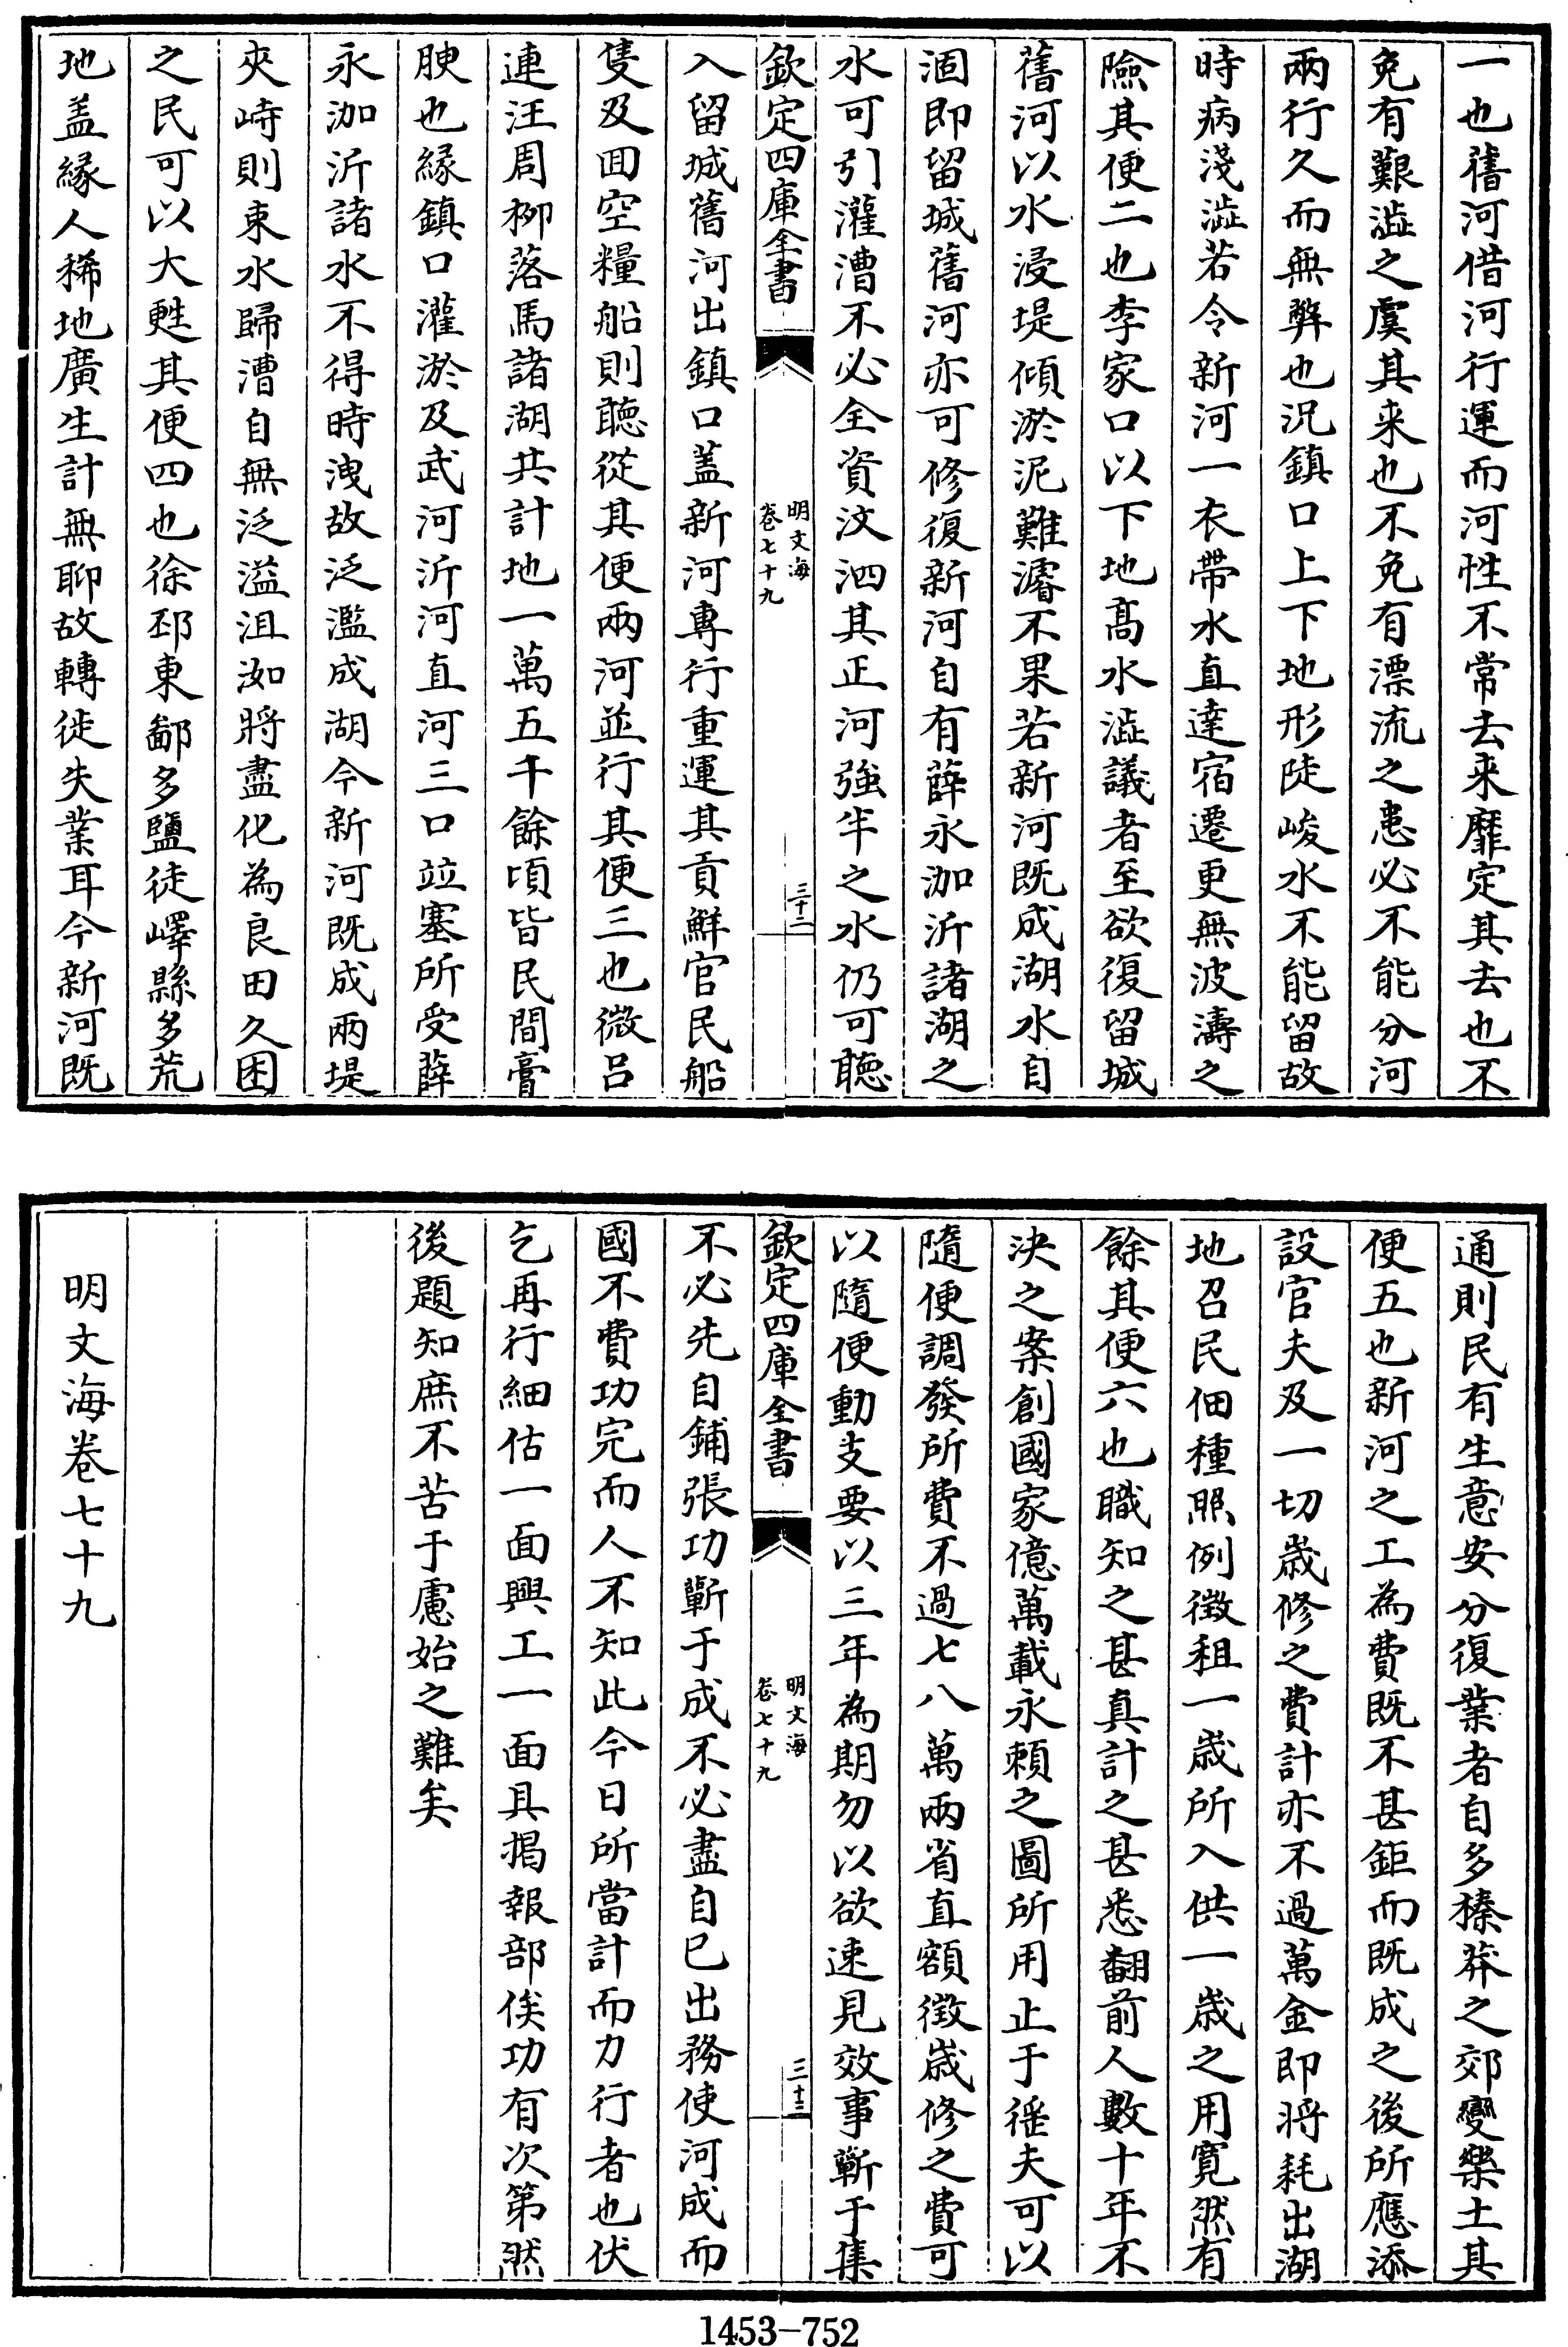 一也舊河借河行運而河性不常去来靡定其去也不
免有艱澁之虞其来也不免有漂流之患必不能分河
兩行久而無弊也況鎮口上下地形陡峻水不能留故
時病淺澁若令新河一衣帶水直達宿遷更無波濤之
險其便二也李家口以下地髙水澁議者至欲復留城
舊河以水浸堤傾淤泥難濬不果若新河既成湖水自
涸即留城舊河亦可修復新河自有薛永泇沂諸湖之
水可引灌漕不必全資汶泗其正河強半之水仍可聽
欽定四庫全書
明文海
卷七十九
三十二
入留城舊河出鎮口盖新河專行重運其貢鮮官民船
隻及囬空糧船則聽從其便兩河並行其便三也微吕
連汪周栁落馬諸湖共計地一萬五千餘頃皆民間膏
腴也緣鎮口灌淤及武河沂河直河三口竝塞所受薛
永泇沂諸水不得時洩故泛濫成湖今新河既成兩堤
夾峙則束水歸漕自無泛溢沮洳將盡化為良田久困
之民可以大甦其便四也徐邳東鄙多鹽徒嶧縣多荒
地盖緣人稀地廣生計無聊故轉徙失業耳今新河既
通則民有生意安分復業者自多榛莽之郊變樂土其
便五也新河之工為費既不甚鉅而既成之後所應添
設官夫及一切歲修之費計亦不過萬金即將耗出湖
地召民佃種照例徴租一歲所入供一歲之用寛然有
餘其便六也職知之甚真計之甚悉翻前人數十年不
決之案創國家億萬載永頼之圖所用止于徭夫可以
隨便調發所費不過七八萬兩省直額徴歲修之費可
以隨便動支要以三年為期勿以欲速見效事蘄于集
欽定四庫全書
明文海
卷七十九
三十三
不必先自鋪張功蘄于成不必盡自已出務使河成而
國不費功完而人不知此今日所當計而力行者也伏
乞再行細估一面興工一面具揭報部俟功有次第然
後題知庶不苦于慮始之難矣
明文海卷七十九
1453-752